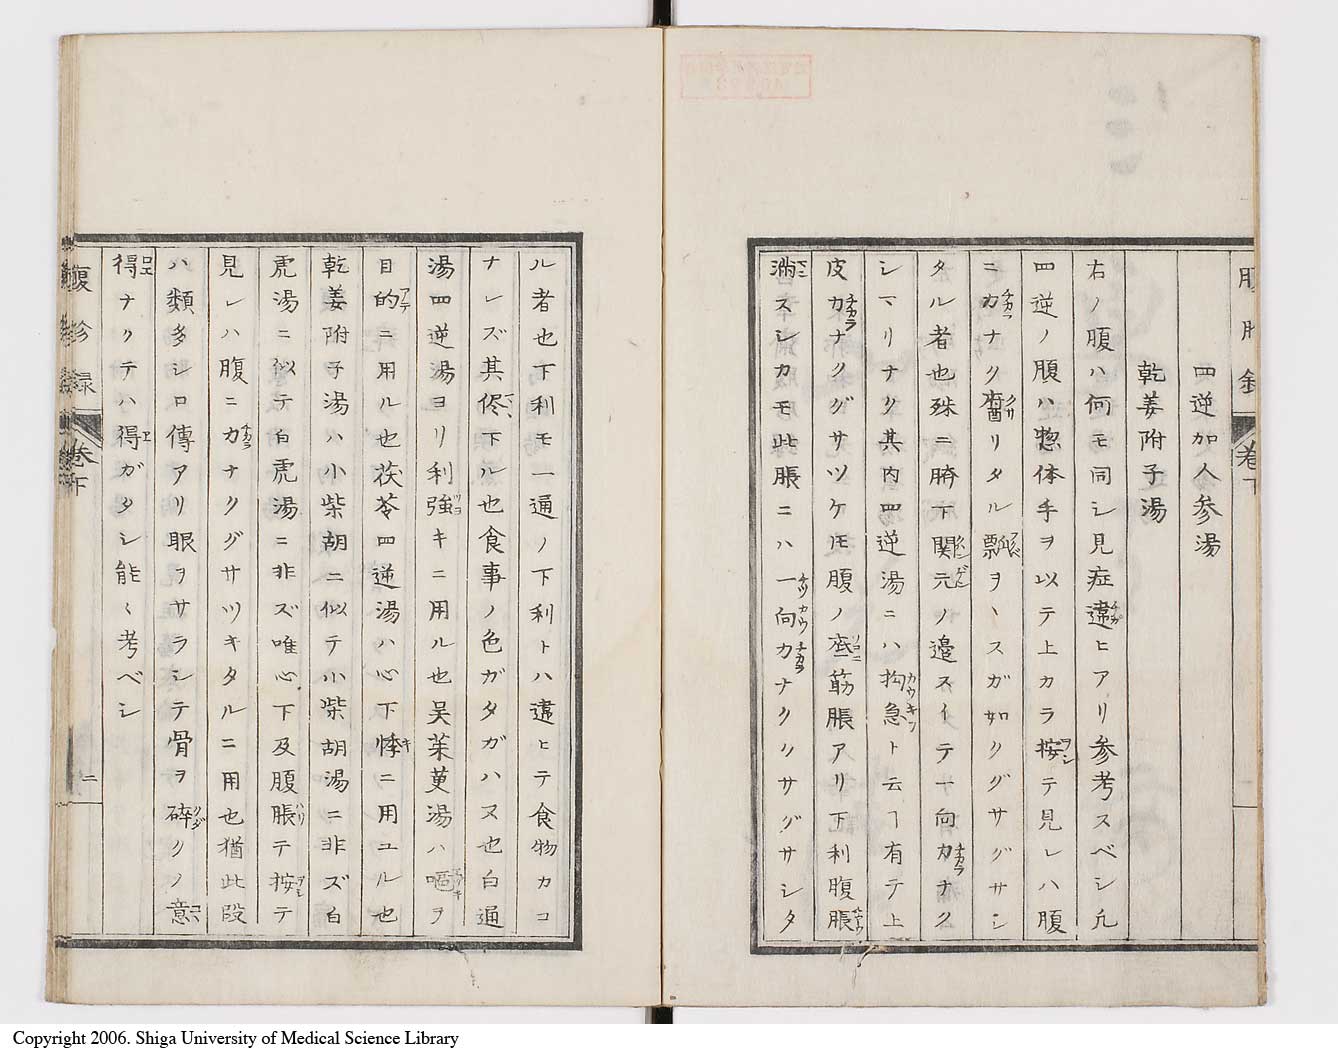 四逆加人参湯
乾姜附子湯
右ノ腹ハ何モ同シ見症違ヒアリ参考スベシ凢
四逆ノ腹ハ惣体手ヲ以テ上カラ按テ見レハ腹
ニカナク腐リタル瓢ヲヽスガ如クグサグサシ
タル者也殊ニ臍下関元ノ邉スイテ一向力ナク
シマリナク其内四逆湯ニハ拘急ト云ヿ有テ上
皮力ナクグサツケ𪜈腹ノ底筋脹アリ下利腹脹
満スシカモ此脹ニハ一向力ナクグサグサシタ
ル者也下利モ一通ノ下利トハ違ヒテ食物カコ
ナレズ其侭下ル也食事ノ色ガタガハヌ也白通
湯四逆湯ヨリ利強キニ用ル也呉茱萸湯ハ嘔ヲ
目的ニ用ル也茯苓四逆湯ハ心下悸ニ用ユル也
乾姜附子湯ハ小柴胡ニ似テ小柴胡湯ニ非ズ白
虎湯ニ似テ白虎湯ニ非ズ唯心下及腹脹テ按テ
見レハ腹ニ力ナクグサツキタルニ用也猶此段
ハ類多シ口傳アリ眼ヲサラシテ骨ヲ碎クノ意
得ナクテハ得ガタシ能〱考ベシ
腹診録 巻下 二
Copyright 2006. Shiga University of Medical Science Library